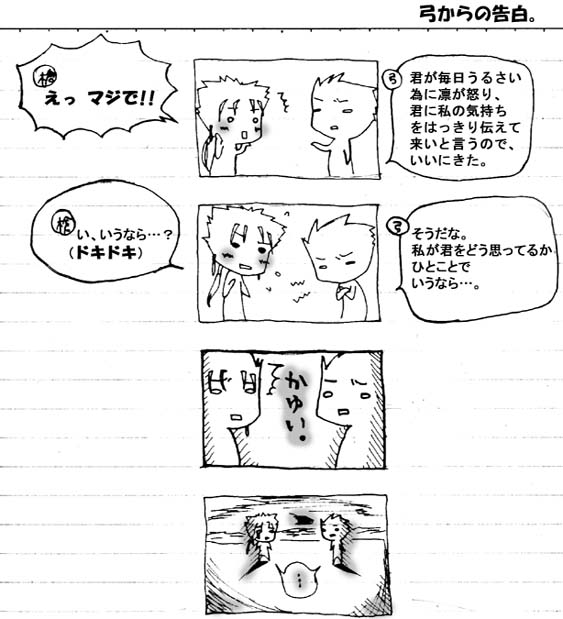 弓からの告白。
弓
君が毎日うるさい
為に凛が怒り、
君に私の気持ち
をはっきり伝えて
来いと言うので、
いいにきた。
槍
えっ マジで!!
弓
そうだな。
私が君をどう思ってるか
ひとことで
いうなら…。
槍
い、いうなら…?
(ドキドキ)
かゆい。
…